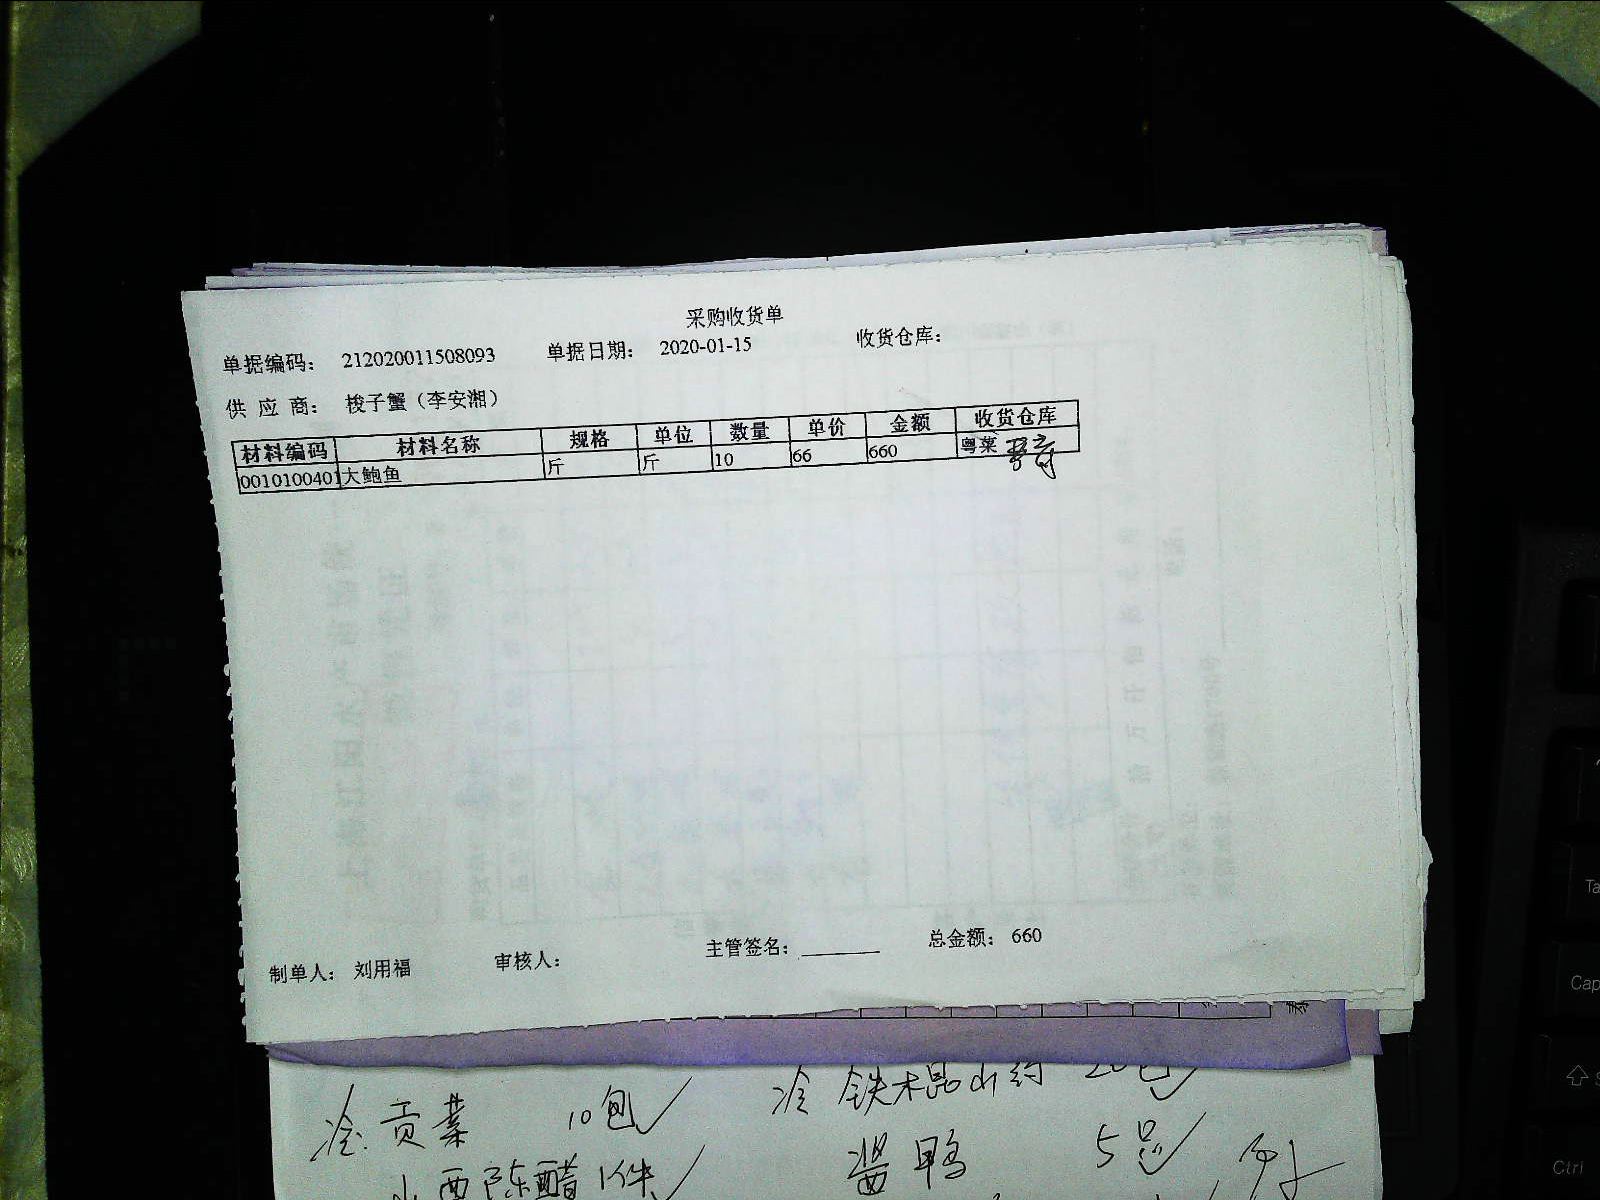 采购收货单
单据编码： 212020011508093 单据日期： 2020-01-15 收货仓库：
供 应 商： 梭子蟹（李安湘）
材料编码 材料名称 规格 单位 数量 单价 金额 收货仓库
0010100401 大鲍鱼 斤 斤 10 66 660 粤菜
制单人： 刘用福 审核人： 主管签名： 总金额： 660
冷 贡菜 10包 冷 铁木昆山药 20包
山西陈醋 1件 酱鸭 5只
Cap
Ctrl